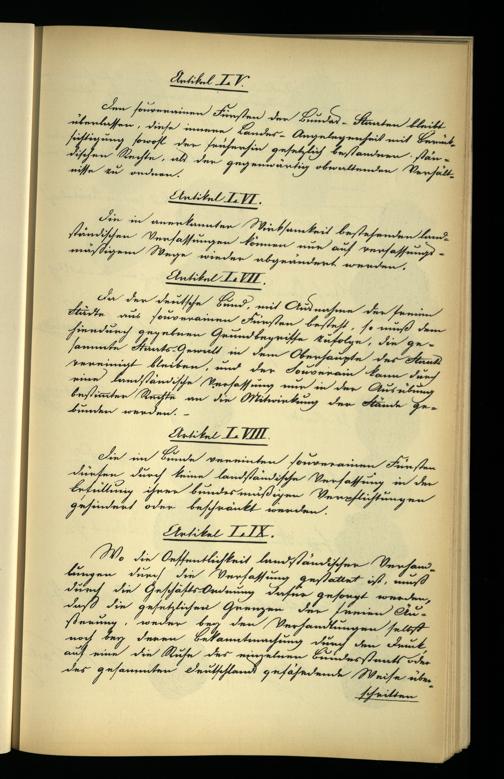 Artikel LV.
Den souverainen Fürsten der Bundes-Staaten bleibt
überlassen, diese innere Landes-Angelegenheit mit Berück-
sichtigung sowohl der früherhin gesetzlich bestandenen stän-
dischen Rechte, als der gegenwärtig obwaltenden Verhält-
nisse zu ordnen.
Artikel LVI.
Die in anerkannter Wirksamkeit bestehenden land-
ständischen Verfassungen können nur auf verfassungs-
mäßigem Wege wieder abgeändert werden.
Artikel LVII.
Da der deutsche Bund, mit Ausnahme der freien
Städte aus souverainen Fürsten besteht, so muß dem
hierdurch gegebenen Grundbegriffe zufolge, die ge-
sammte Staats-Gewalt in dem Oberhaupte des Staats
vereinigt bleiben, und der Souverain kann durch
eine landständische Verfassung nur in der Ausübung
bestimmter Rechte an die Mitwirkung der Stände ge-
bunden werden. -
Artikel LVIII.
Die im Bunde vereinten souverainen Fürsten
dürfen durch keine landständische Verfassung in der
Erfüllung ihrer bundesmäßigen Verpflichtungen
gehindert oder beschränkt werden.
Artikel LIX.
Wo die Oeffentlichkeit landständischer Verhand-
lungen durch die Verfassung gestattet ist, muß
durch die Geschäfts-Ordnung dafür gesorgt werden,
daß die gesetzlichen Grenzen der freien Äu-
ßerung, weder bey den Verhandlungen selbst
noch bey deren Bekanntmachung durch den Druck,
auf eine die Ruhe des einzelnen Bundesstaats oder
des gesammten Deutschlands gefährdende Weise über-
schritten